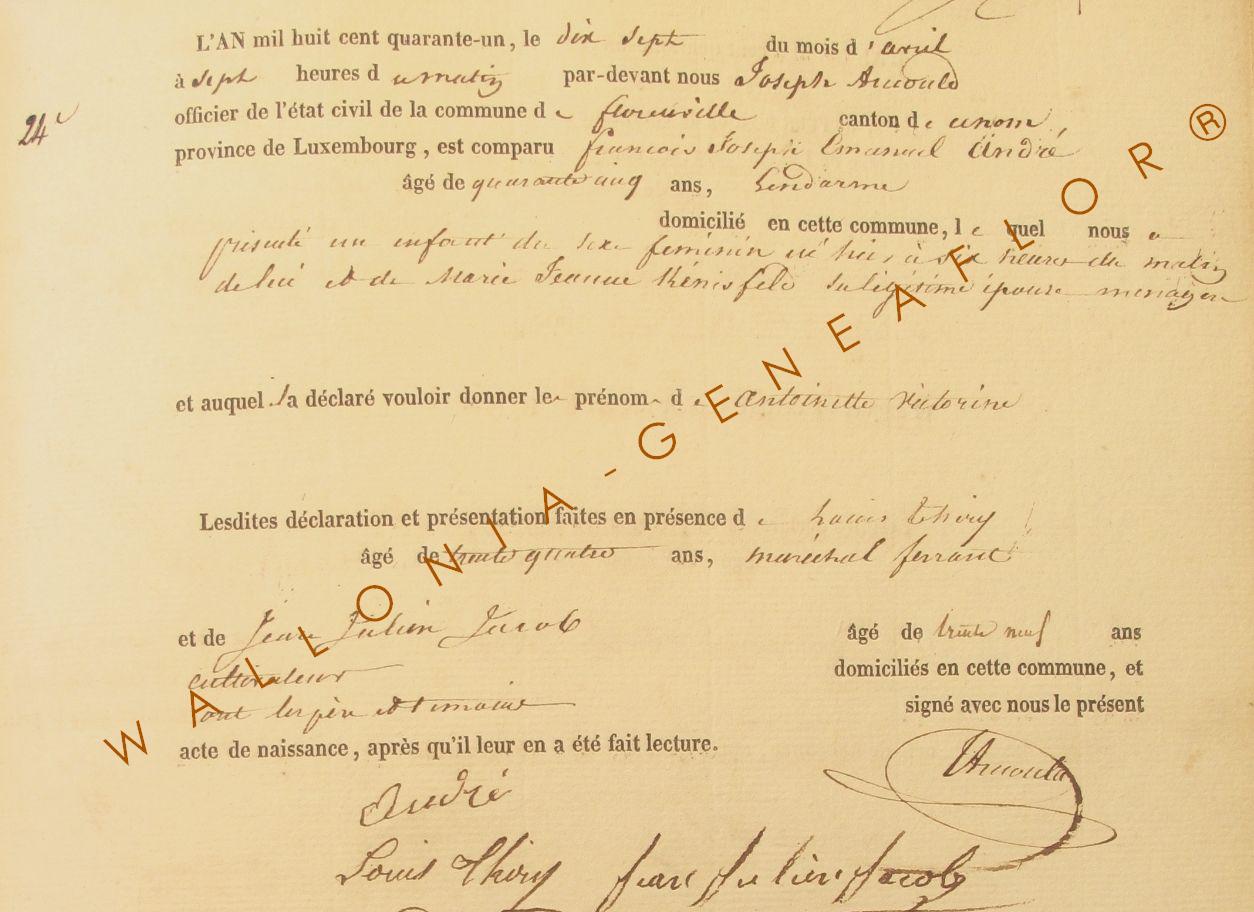 L'AN mil huit cent quarante-un, le dix sept du mois d'avril
à sept heures du matin par-devant nous Joseph Arnould
24e
officier de l'état civil de la commune de florenville canton de dunom,
province de Luxembourg, est comparu francois Joseph Emanuel André
âgé de quarante cinq ans, Gendarme
domicilié en cette commune, lequel nous a
présenté un enfant du sexe féminin né hier à six heures du matin
de lui et de Marie Jeanne sa légitime épouse menagere
et auquel il a déclaré vouloir donner le prénom de antoinette victorine
Lesdites déclaration et présentation faites en présence de Louis Thiry
âgé de trente quatre ans, maréchal ferrant
et de Jean Julien Jacob âgé de trente neuf ans
cultivateur domiciliés en cette commune, et
ont les père et temoins signé avec nous le présent
acte de naissance, après qu'il leur en a été fait lecture.
Arnould
André
Louis Thiry Jean Julien Jacob
WALLONIA-GENEAFLOR®